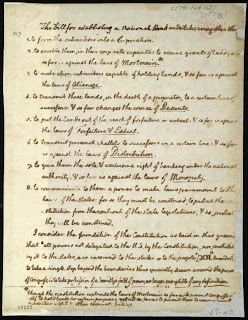 The bill for establishing a National Bank undertakes among other things
1. to form the subscribers into a Corporation.
2. to enable them, in their corporate capacities to receive grants of land; & so
far is against the laws of Mortmain.
3. to make alien subscribers capable of holding lands, & so far is against
the laws of Alienage.
4. to transmit these lands, on the death of a proprietor, to a certain line of
successors: & so far changes the course of Descents.
5. to put the lands out of the reach of forfeiture or escheat & so far is against
the laws of Forfeiture & Escheat.
6. to transmit personal chattels to successors in a certain line: & so far
is against the laws of Distribution.
7. to give them the sole & exclusive right of banking under the national
authority: & so far is against the laws of Monopoly.
8. to communicate to them a power to make laws paramount to the
laws of the states: for so they must be construed, to protect the
institution from the controul of the state legislatures; & so, probably
they will be construed.
I consider the foundation of the Constitution as laid on this ground
that 'all powers not delegated to the U.S. by the Constitution, nor prohibited
by it to the states, are reserved to the states or to the people'
to take a single step beyond the boundaries thus specially drawn around the powers
of Congress, is to take possession of a boundless field of power, no longer susceptible of any definition.